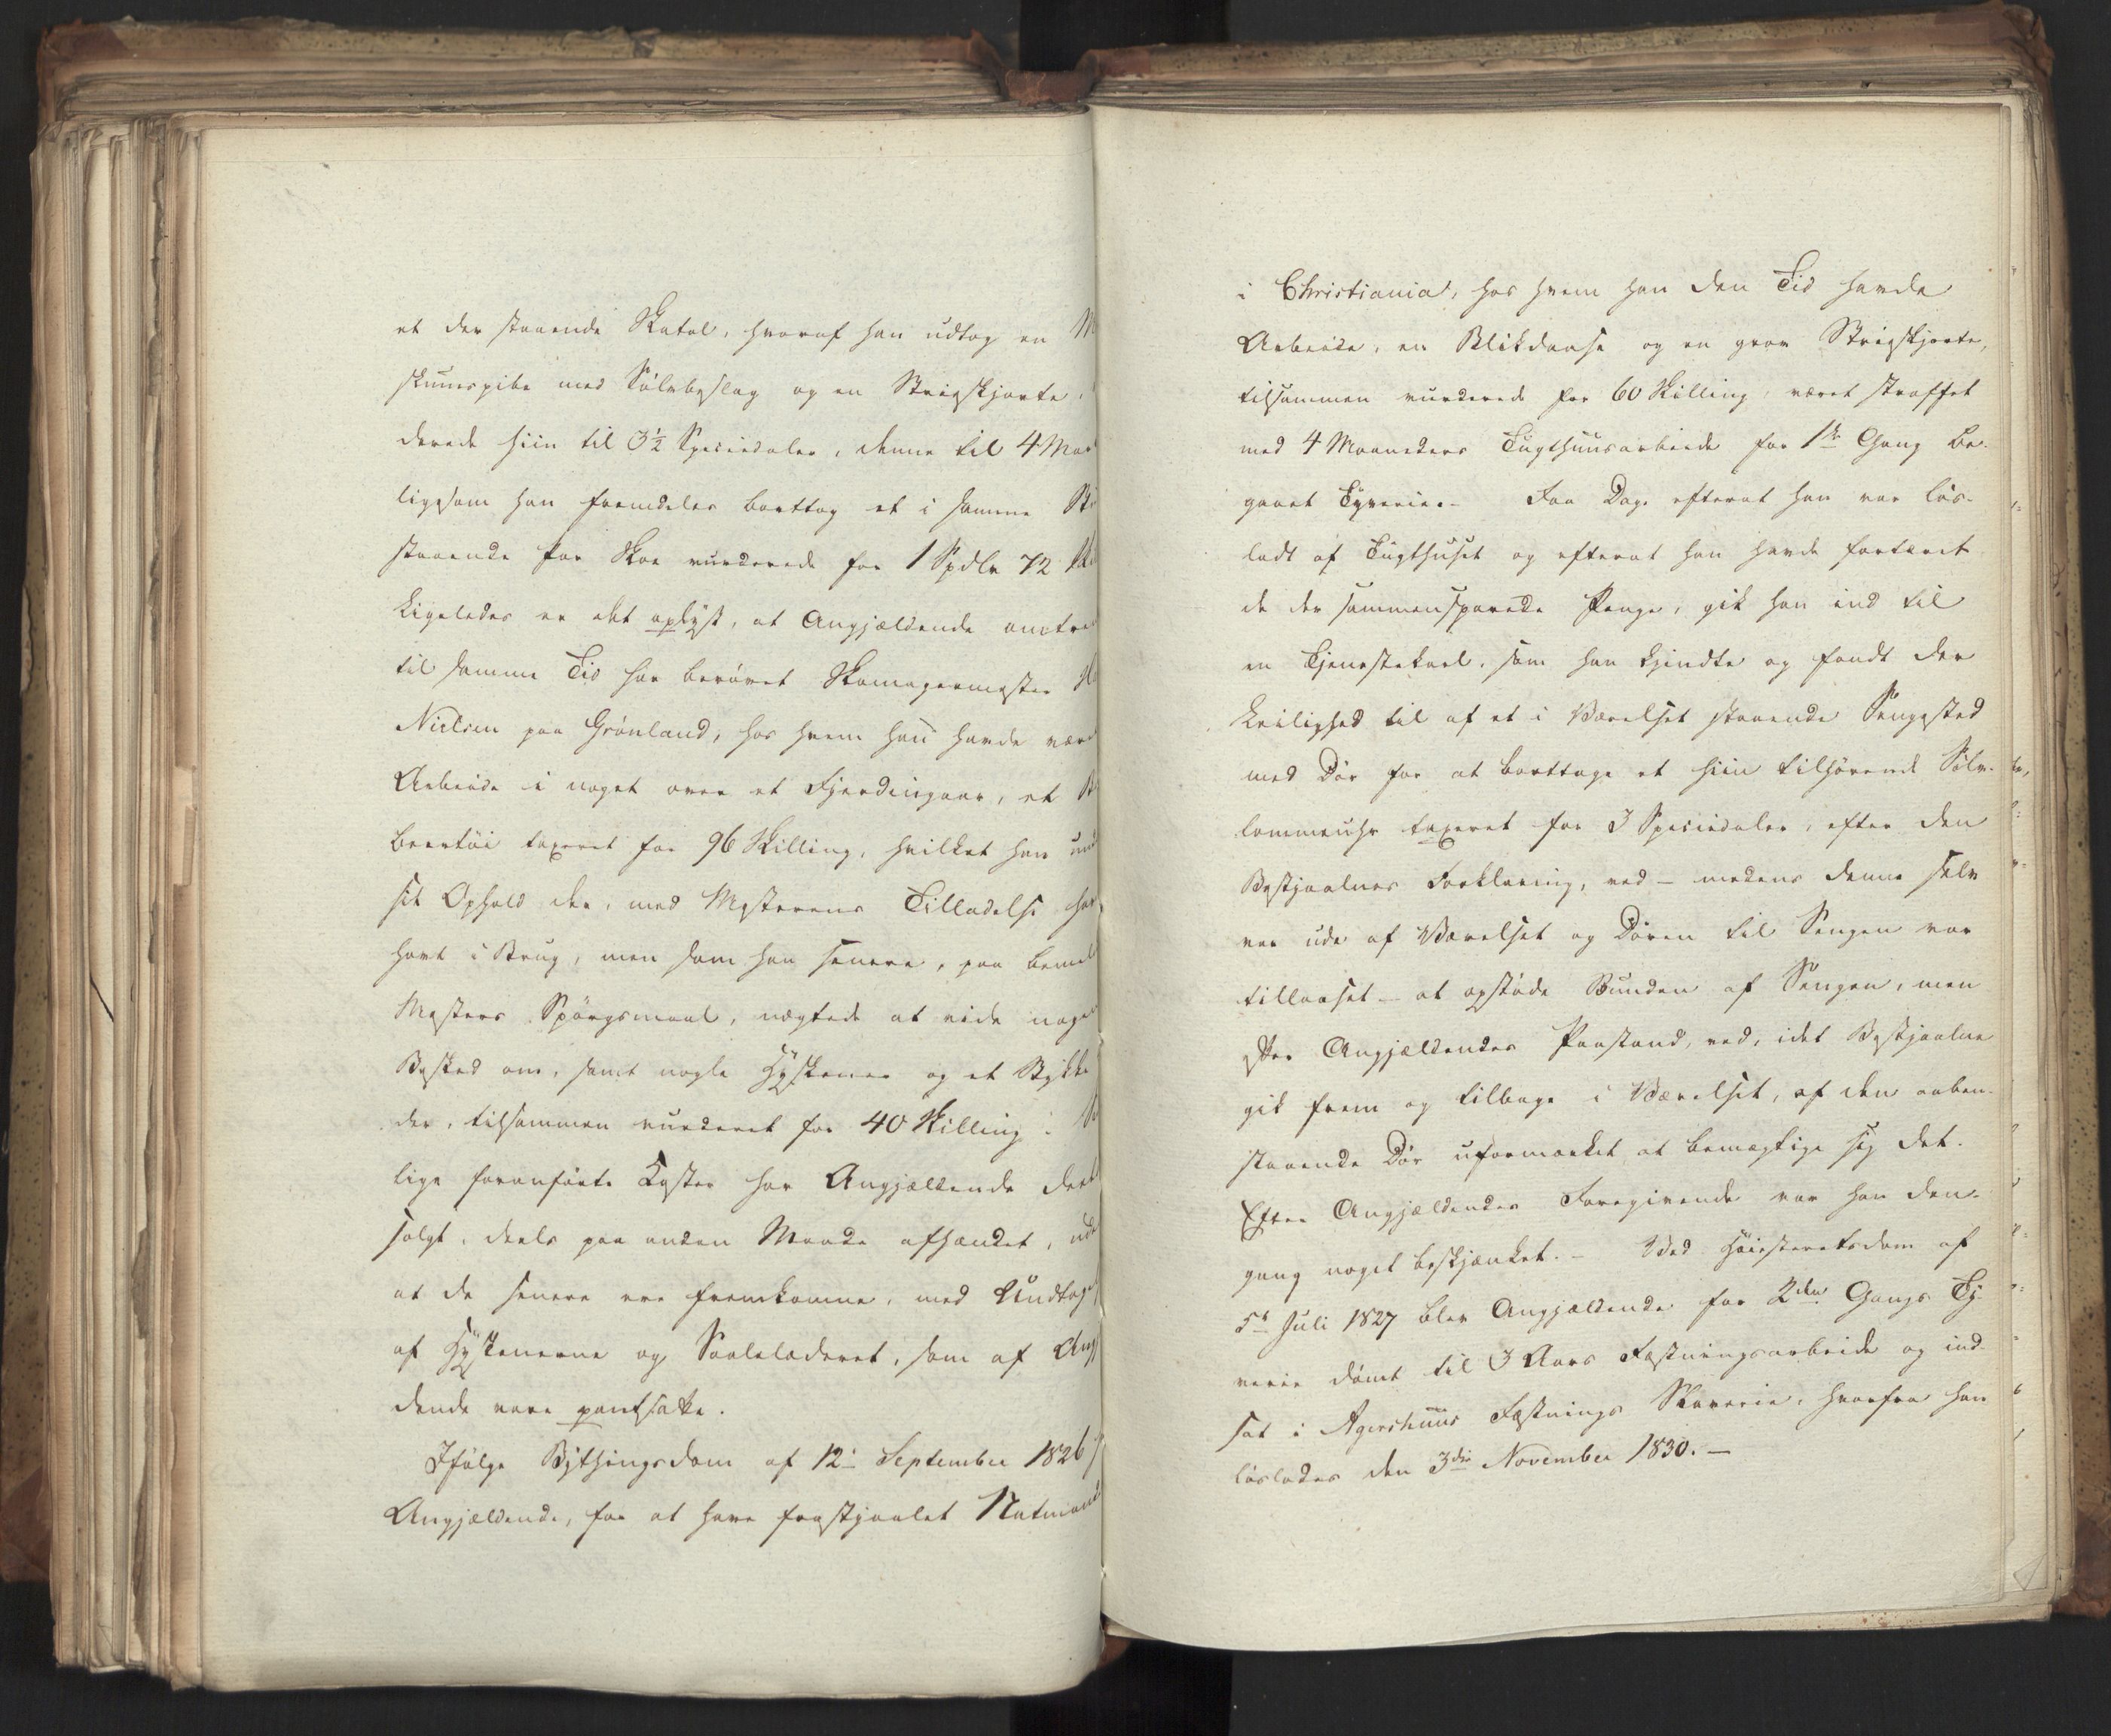 et der staaende Skatol, hvoraf han udtog en M
skumspibe med Sølvbeslag og en Strieskjorte,
derede hiin til 3½ Speciedaler, denne til 4 Mar
ligesom han fremdeles borttog et i samme
staaende Par Skoe vurderede for 1 Spdlr 72
Ligeledes er det oplyst, at Angjældende omtre
til samme Tid har berøvet Skomagermester
Nielsen paa Grønland, hos hvem han havde være
Arbeide i noget over et Fjerdingaar, et
beertøi taxeret for 96 Skilling, hvilket han und
sit Ophold der, med Mesterens Tilladelse hav
havt i Brug, men som han senere, paa bemel
Mesters Spørgsmaal, nægtede at vide noge
Besked om, samt nogle Hyskener og et Stykke
der, tilsammen vurderet for 40 Skilling.
lige foranførte Koster har Angjældende deel
solgt, deels paa anden Maade afhændet, ude
at de senere ere fremkomne, med Undtage
af Hyskenerne og Saalelæderet, som af Angj
dende vare pantsatte.
Ifølge Bythingsdom af 12te September 1826
Angjældende, for at have frastjaalet Natmand
i Christiania, hos hvem han den Tid havde
Arbeide, en Blikdaase og en grov Strieskjorte,
tilsammen vurderede for 60 Skilling, været straffet
med 4 Maaneders Tugthuusarbeide for 1ste Gang be-
gaaet Tyverie.- Faa Dage efterat han var løs-
ladt af Tugthuset og efterat han havde fortæret
de der sammensparede Penge, gik han ind til
en Tjenestekarl, som han kjendte og fandt der
Leilighed til af et i Værelset staaende Sengested
med Dør for at borttage et hiin tilhørende Sølv-
lommeuhr taxeret for 3 Speciedaler, efter den
Bestjaalnes Forklaring, ved - medens denne selv
var ude af Værelset og Døren til Sengen var
tillaaset - at opstøde Bunden af Sengen, men
efter Angjældendes Paastand, ved, idet Bestjaalne
gik frem og tilbage i Værelset, af den aaben-
staaende Dør uformærket at bemægtige sig det.
Efter Angjældendes Foregivende var han den-
gang noget beskjænket. - Ved Høiesteretsdom af
5te Juli 1827 blev Angjældende for 2den Gangs Ty-
verie dømt til 3 Aars Fæstningsarbeide og ind-
sat i Agershuus Fæstnings Slaverie, hvorfra han
løslodes den 3die November 1830. -